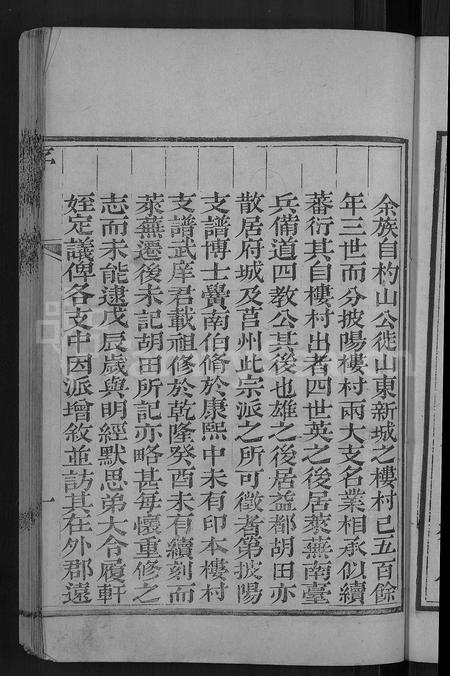 余族自杓山公徙山東新城之樓村已五百餘
年三世而分披陽樓村兩大支名業相承似續
蕃衍其自樓村出者四世英之後居萊蕪南臺
兵備道四教公其後也雄之後居益都胡田亦
散居府城及莒州此宗派之所可徵者第披陽
支譜博士黌南伯脩於康熙中未有印本樓村
支譜武庠君載祖修於乾隆癸酉未有續刻而
萊蕪遷後未記胡田所記亦略甚每懷重修之
志而未能逮戊辰歲與明經默思弟大令履軒
姪定議俾各支中因派增敘並訪其在外郡遠
序
一